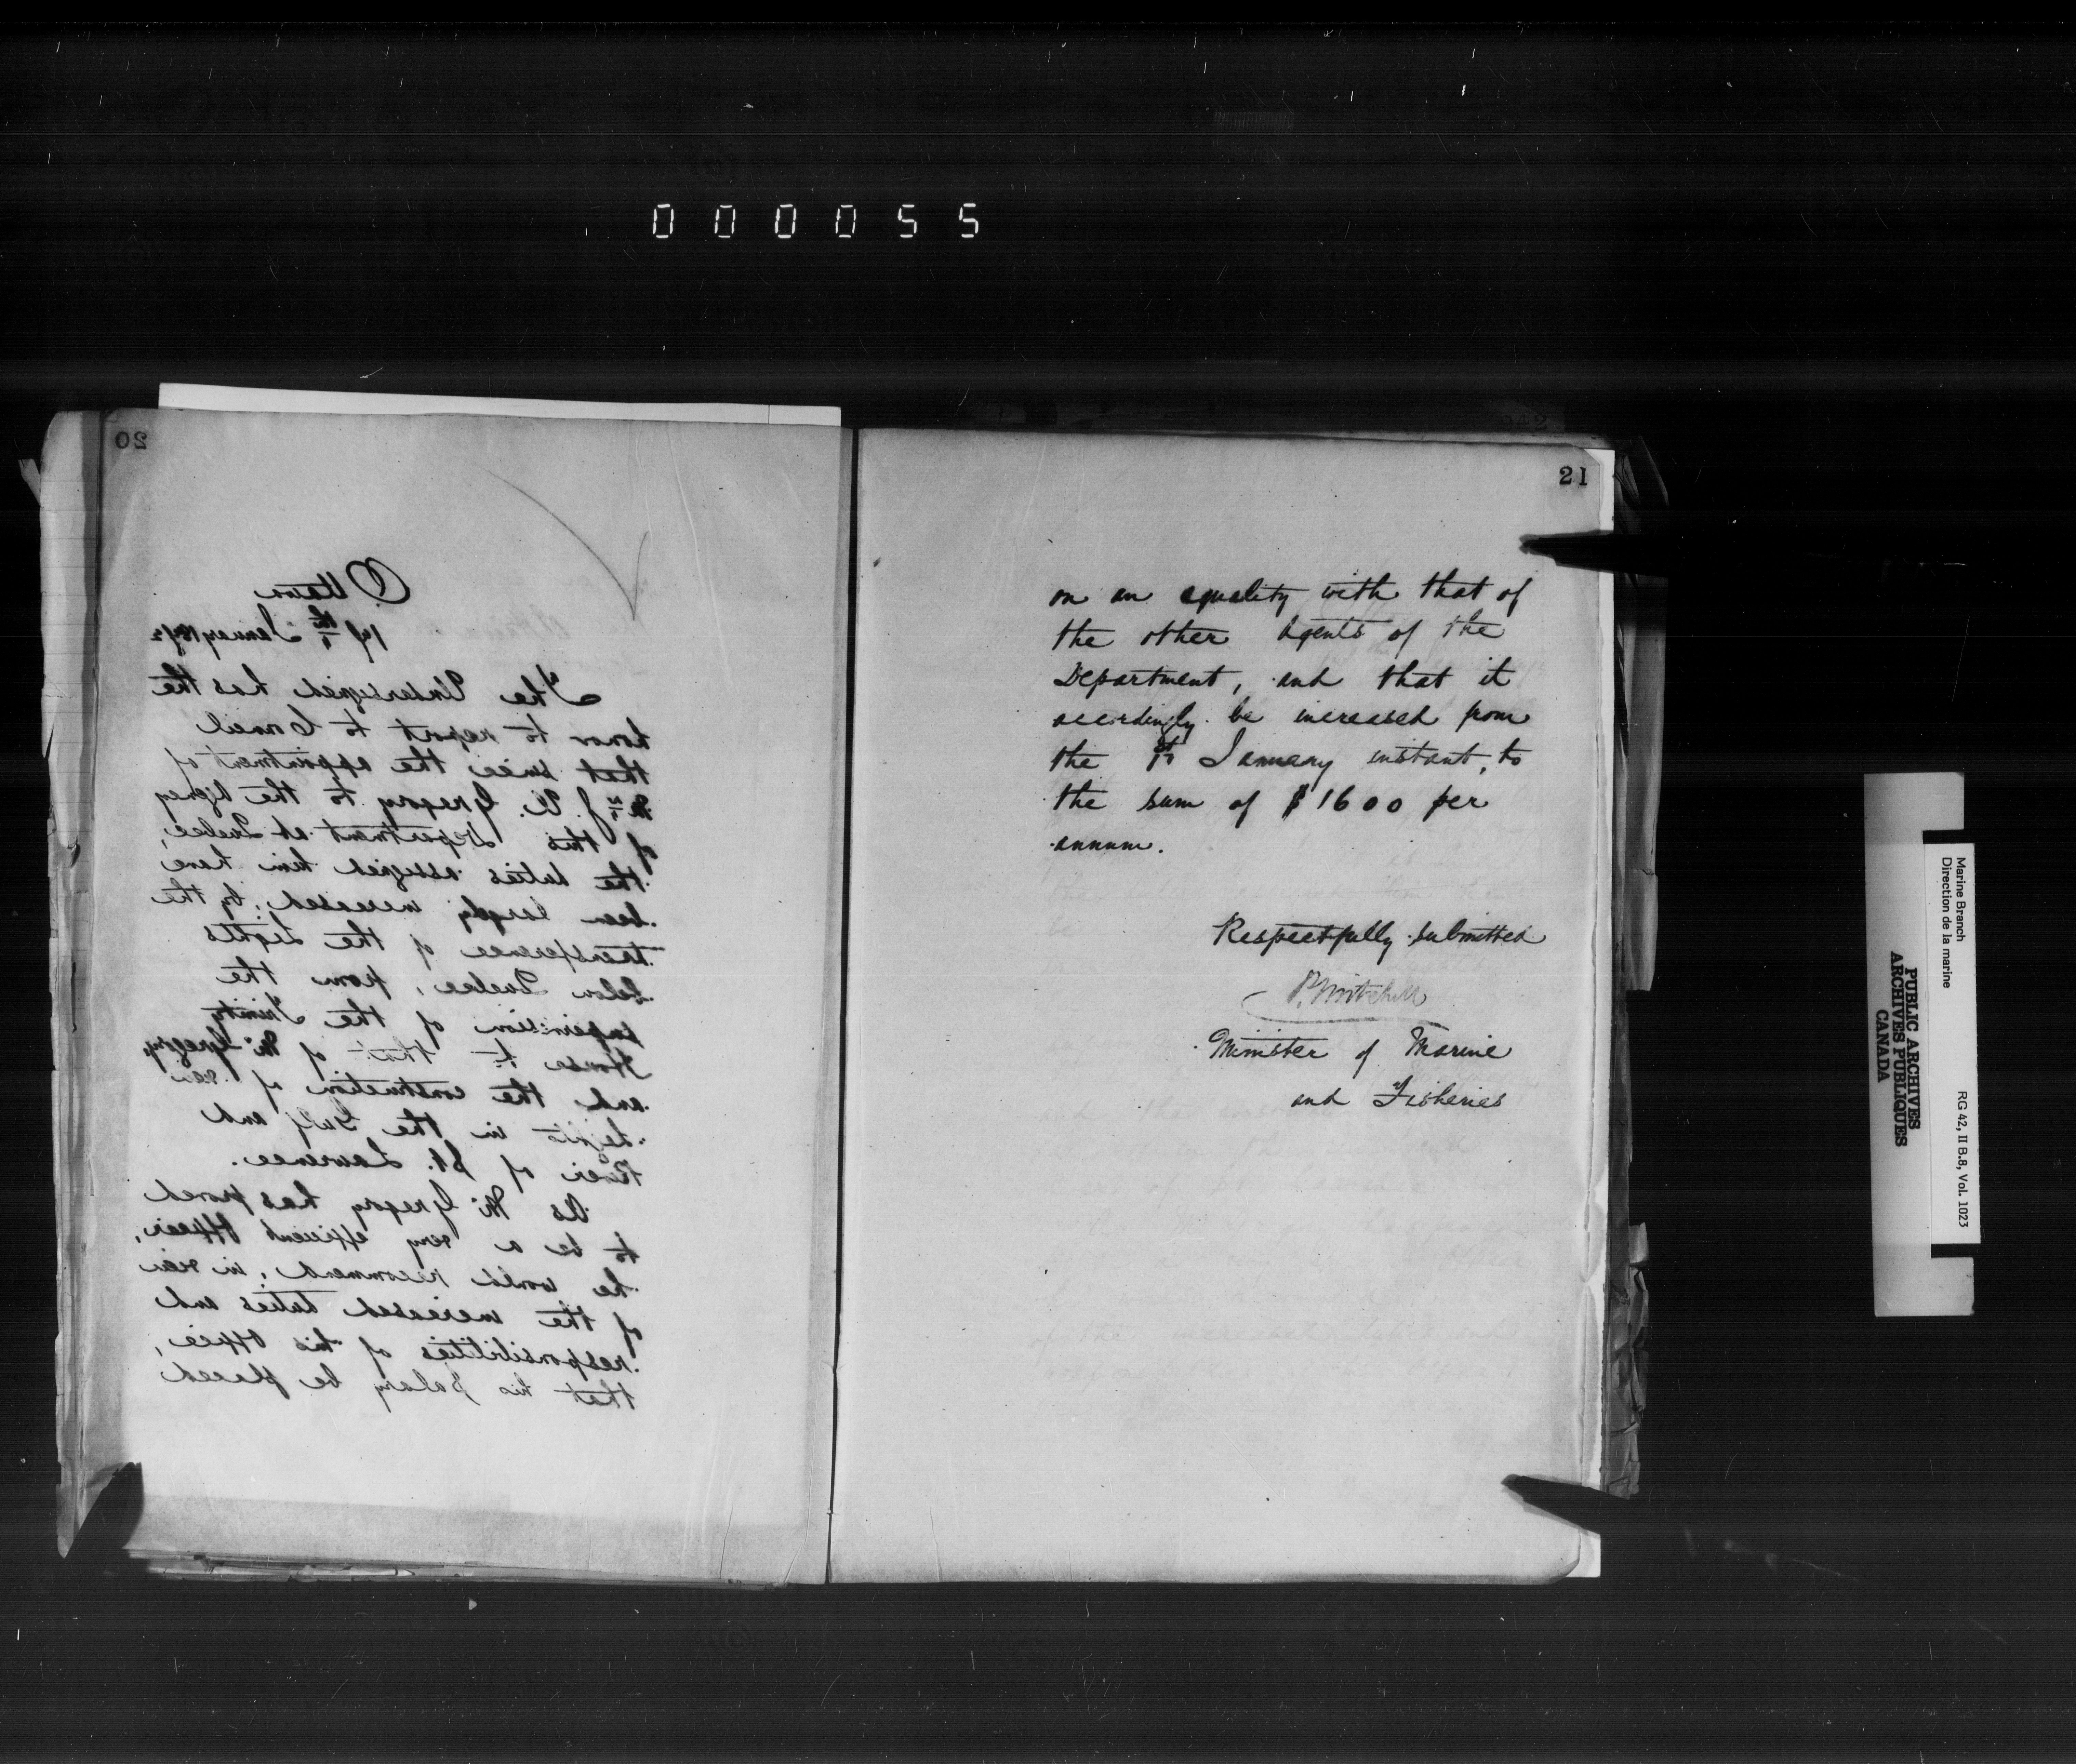 000055
20
Ottawa
19th January 1872
The Undersigned has the
honor to report to Council
that since the appointment of
Mr J. U. Gregory to the Agency
of this Department at Quebec,
the duties assigned him have
been largely increased, by the
transference of the Lights
below Quebec, from the
supervision of the Trinity
House to that of Mr Gregory,
and the construction of new
Lights in the Gulf and
River of St. Lawrence.
As Mr Gregory has proved
to be a very efficient officer,
he would recommend, in view
of the increased duties and
responsibilities of his office,
that his Salary be placed
21
on an equality with that of
the other Agents of the
Department, and that it
accordingly be increased from
the 1st January instant, to
the sum of $1600 per
annum.
Respectfully submitted
P. Mitchell
Minister of Marine
and Fisheries
Marine Branch
Direction de la marine
RG 42, II B.8, Vol. 1023
PUBLIC ARCHIVES
ARCHIVES PUBLIQUES
CANADA